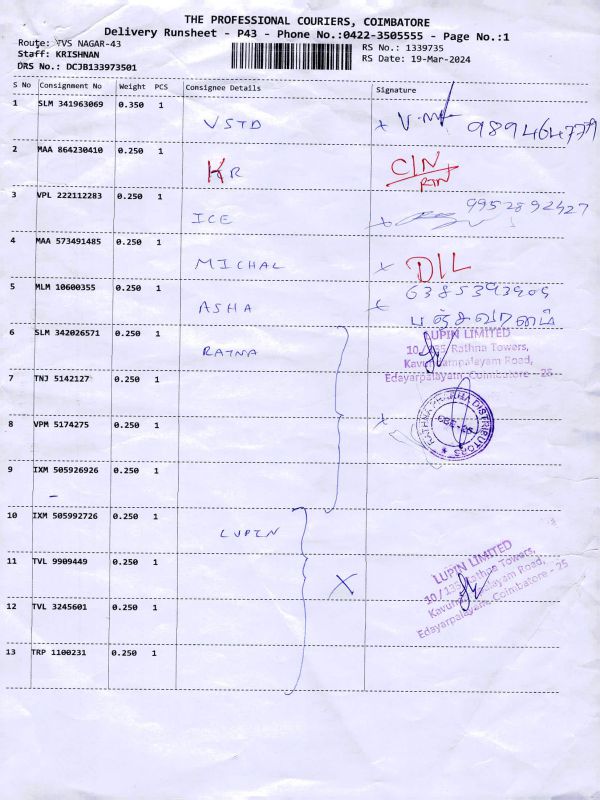 THE PROFESSIONAL COURIERS, COIMBATORE
Delivery Runsheet - P43 - Phone No.:0422-3505555 - Page No.:1
Route: TVS NAGAR-43
Staff: KRISHNAN
DRS No.: DCJB133973501
RS No.: 1339735
RS Date: 19-Mar-2024
S No Consignment No Weight PCS Consignee Details Signature
1 SLM 341963069 0.350 1 VSTD x
2 MAA 864230410 0.250 1 KR C/N RTN
3 VPL 222112283 0.250 1 ICE x 9952892427
4 MAA 573491485 0.250 1 MICHAL x DIL
5 MLM 10600355 0.250 1 ASHA x
பஞ்சவர்ணம்
6 SLM 342026571 0.250 1 RATNA
LUPIN LIMITED
10 / 135 Rathna Towers,
Road,
Edayarpalayam, Coimbatore - 25
7 TNJ 5142127 0.250 1
8 VPM 5174275 0.250 1 x
RATHNA PRABHA DISTRIBUTORS
CBE-25
9 IXM 505926926 0.250 1
-
10 IXM 505992726 0.250 1 LUPIN
LUPIN LIMITED
10 / 135 Rathna Towers,
Road,
Edayarpalayam, Coimbatore - 25
11 TVL 9909449 0.250 1 X
12 TVL 3245601 0.250 1
13 TRP 1100231 0.250 1